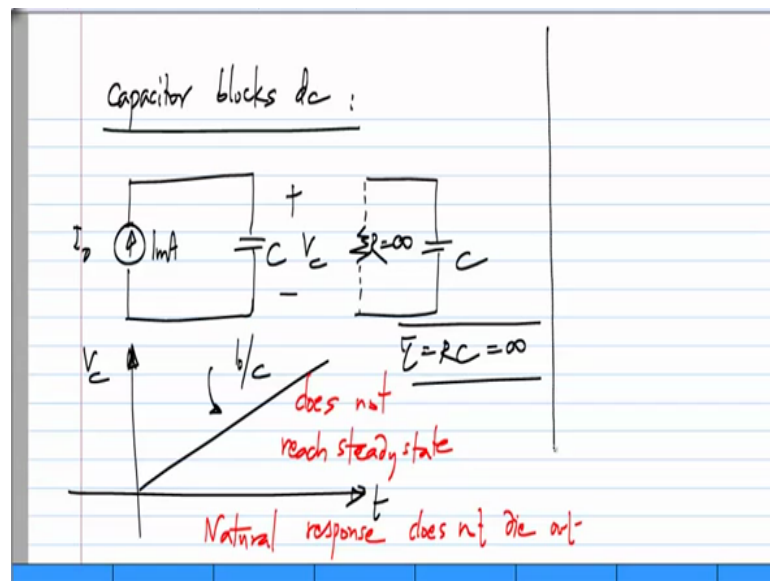 Capacitor blocks dc :
I₀ 1mA C + V_C − R=∞ C
τ=RC=∞
V_C I₀/C
does not
reach steady state
t
Natural response does not die out